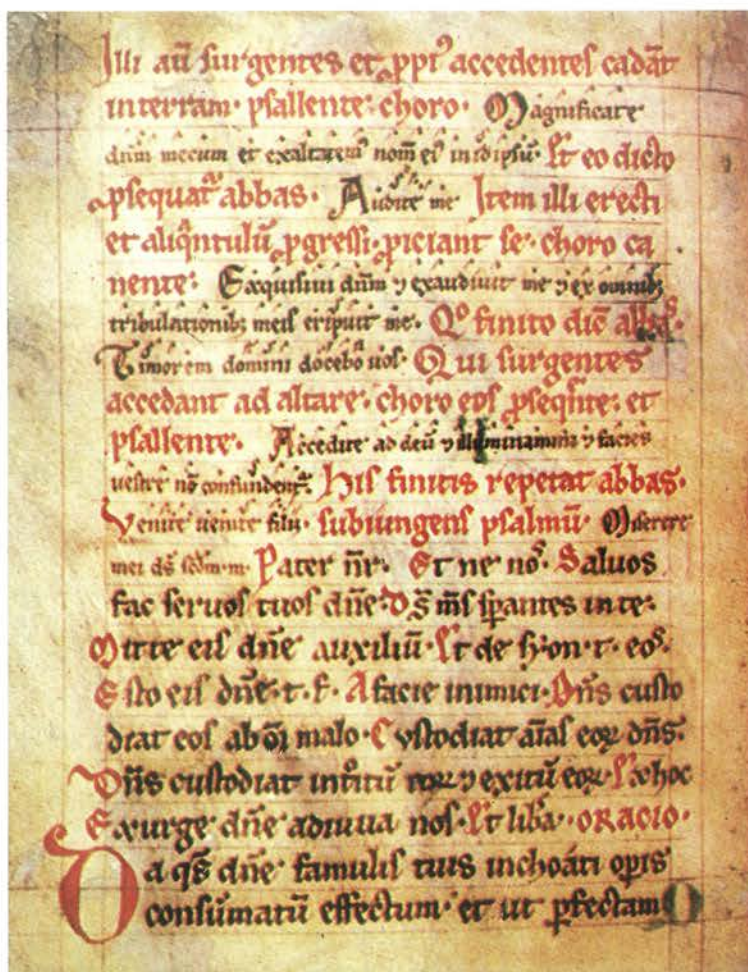 Illi aũ surgentes et ꝓpiꝰ accedentes cadãt
in terram· psallente choro· Magnificate
dñm mecum et exaltemꝰ nom̃ eiꝰ in idipsũ· Et eo dicto
ꝓsequat᷑ abbas· Audite me Item illi erecti
et aliqñtulũ ꝓgressi· ꝓiciant se· choro ca
nente· Exquisiui dñm ⁊ exaudiuit me ⁊ ex omnibꝫ
tribulationibꝫ meis eripuit me· Qͦ finito dic̃ abbas·
Timorem domini docebo uos· Qui surgentes
accedant ad altare· choro eos ꝓseqñte· et
psallente· Accedite ad deũ ⁊ illuminamini ⁊ facies
uestre nõ confundent᷑· His finitis repetat abbas·
Venite uenite filii· subiungens psalmũ· Miserere
mei ds̃ scdm̃· m· Pater ñr· Et ne noˢ· Saluos
fac seruos tuos dñe· Ds̃ m̃s sp̃antes in te·
Mitte eis dñe auxiliũ· Et de syon· t· eoˢ·
Esto eis dñe· t· f· A facie inimici· Dñs custo
diat eos ab õi malo· Custodiat aĩas eoꝝ dñs·
Dñs custodiat introitũ eoꝝ ⁊ exitũ eoꝝ· Ex hoc
Exurge dñe adiuua nos· Et liba· ORACIO·
Da qs̃ dñe famulis tuis inchoati oꝑis
consũmatũ effectum· et ut ꝑfectam